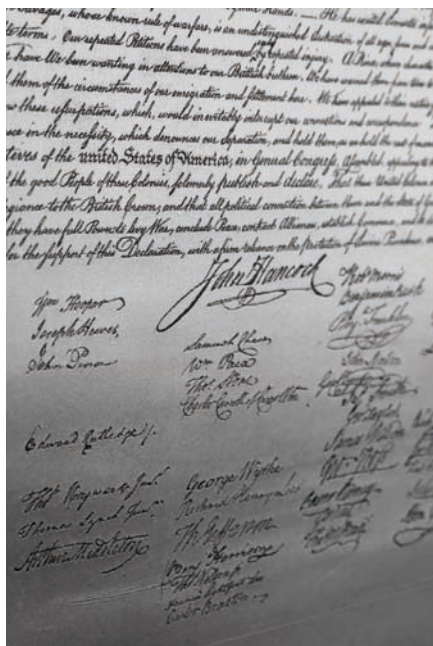 hands. — He has excited domestic
Savages, whose known rule of warfare, is an undistinguished destruction of all ages,
terms: Our repeated Petitions have been answered only by repeated injury. A Prince, whose character
have We been wanting in attentions to our Brittish brethren. We have warned them from time to
them of the circumstances of our emigration and settlement here. We have appealed to their native
these usurpations, which, would inevitably interrupt our connections and correspondence.
in the necessity, which denounces our Separation, and hold them, as we hold the rest of
of the united States of America, in General Congress, Assembled, appealing to the
the good People of these Colonies, solemnly publish and declare, That these United Colonies
to the British Crown, and that all political connection between them and the State of
they have full Power to levy War, conclude Peace, contract Alliances, establish Commerce, and
for the support of this Declaration, with a firm reliance on the protection of divine Providence,
John Hancock
Wm Hooper
Joseph Hewes,
John Penn
Edward Rutledge /.
Thos Heyward Junr.
Thomas Lynch Junr.
Arthur Middleton
Samuel Chase
Wm Paca
Thos Stone
Charles Carroll of Carrollton
George Wythe
Richard Henry Lee
Th Jefferson
Benj Harrison
Thos Nelson jr.
Francis Lightfoot Lee
Carter Braxton
Robt Morris
Benjamin Rush
Benj Franklin
John Morton
Geo Clymer
Jas Smith
Geo Taylor
James Wilson
Geo Ross
Caesar Rodney
Geo Read
Tho M:Kean